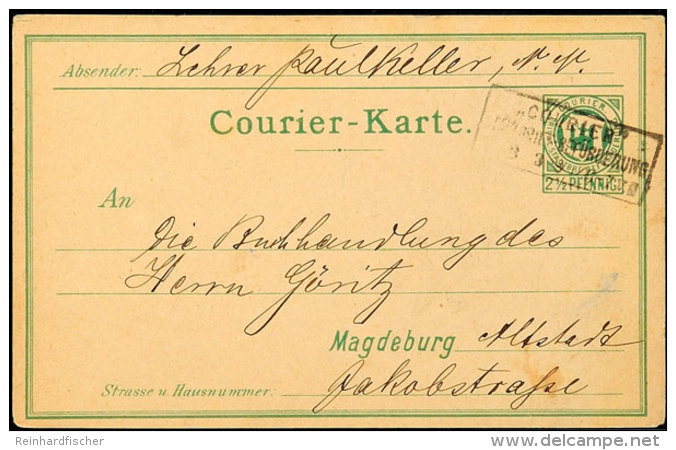 Absender: Lehrer Paul Keller, N. N.
Courier-Karte.
COURIER
„COURIER"
BEFÖRDERUNG
2½ PFENNIG
An
die Buchhandlung des
Herrn Göritz
Magdeburg Altstadt
Strasse u. Hausnummer: Jakobstraße
Reinhardfischer
www.delcampe.net